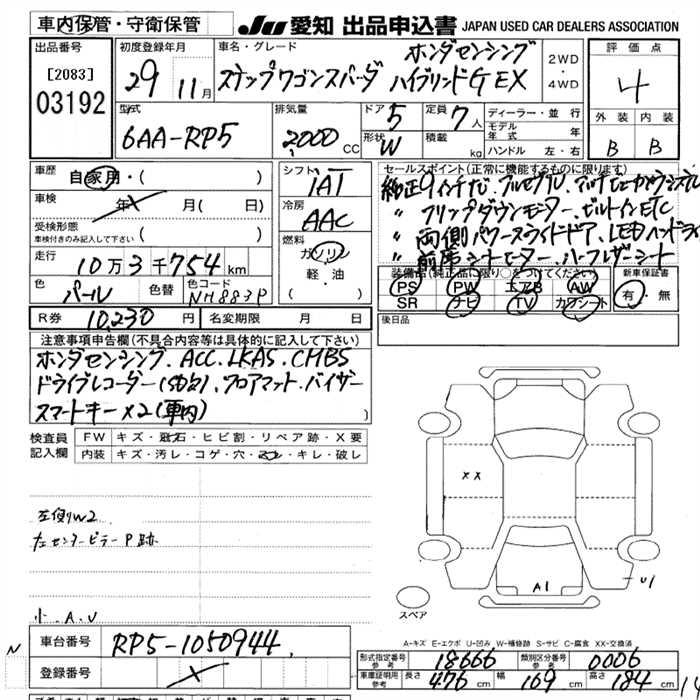 車内保管・守衛保管
JU 愛知 出品申込書 JAPAN USED CAR DEALERS ASSOCIATION
出品番号
[2083]
03192
初度登録年月
29 11月
車名・グレード
ホンダセンシング
ステップワゴンスパーダ ハイブリッドG EX
2WD
・
4WD
評価点
4
外装 内装
B B
型式
6AA-RP5
排気量
2000 CC
ドア 5
形状 W
定員 7人
積載 kg
ディーラー・並行
モデル年式 年
ハンドル 左・右
車歴 自家用・( )
車検 年 月( 日)
受検形態
車検付きのみ記入して下さい ( )
走行 10万3千754km
色 パール 色替 色コード NH883P
シフト
IAT
冷房
AAC
燃料
ガソリン
軽・油
( )
セールスポイント(正常に機能するものに限ります)
純正9インチナビ、フルセグTV、マルチビューカメラシステム
〃 フリップダウンモニター、ビルトインETC
〃 両側パワースライドドア、LEDヘッドライ
〃 前席シートヒーター、ハーフレザーシート
装備品(純正品に限り○をつけてください)
PS PW エアB AW
SR ナビ TV カワシート
新車保証書
有・無
後日品
R券 10,230円 名変期限 月 日
注意事項申告欄(不具合内容等は具体的に記入して下さい)
ホンダセンシング、ACC、LKAS、CMBS
ドライブレコーダー(社外)、フロアマット、バイザー
スマートキー×2(車内)
検査員記入欄
FW キズ・飛石・ヒビ割・リペア跡・X要
内装 キズ・汚レ・コゲ・穴・スレ・キレ・破レ
左側りW2
左センターピラーP跡
小、A、U
XX
A1
U1
スペア
A-キズ E-エクボ U-凹み W-補修跡 S-サビ C-腐食 XX-交換済
N
車台番号 RP5-1050944
登録番号
形式指定番号 参考 18666 類別区分番号 参考 0006
車庫証明用 参考 長さ 476cm 幅 169cm 高さ 184cm